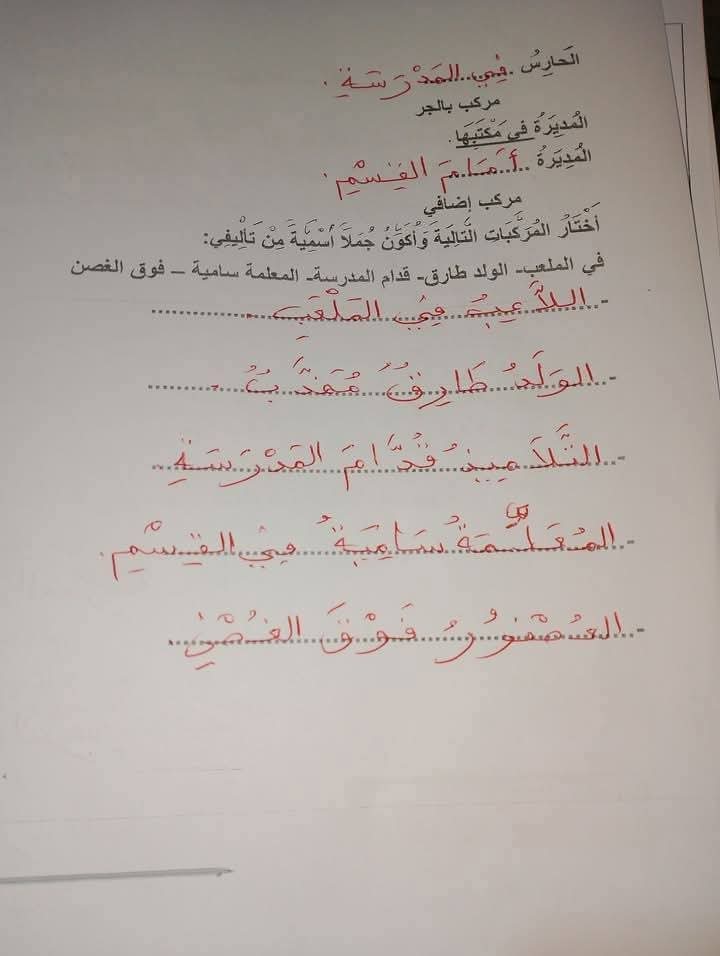 الحَارِسُ فِي المَدْرَسَةِ.
مركب بالجر
المُدِيَرَةُ فِي مَكْتَبِهَا.
المُدِيَرَةُ أَمَامَ القِسْمِ.
مركب إضافي
أَخْتَارُ المُرَكَّبَاتِ التَّالِيَةَ وَأُكَوِّنُ جُمَلاً اُسْمِيَّةً مِنْ تَأْلِيفِي:
في الملعب- الولد طارق- قدام المدرسة- المعلمة سامية – فوق الغصن
- اللاَّعِبُ فِي المَلْعَبِ.
- الوَلَدُ طَارِقُ مُهَذَّبٌ.
- التَّلاَمِيذُ قُدَّامَ المَدْرَسَةِ.
- المُعَلِّمَةُ سَامِيَةُ فِي القِسْمِ.
- العُصْفُورُ فَوْقَ الغُصْنِ.